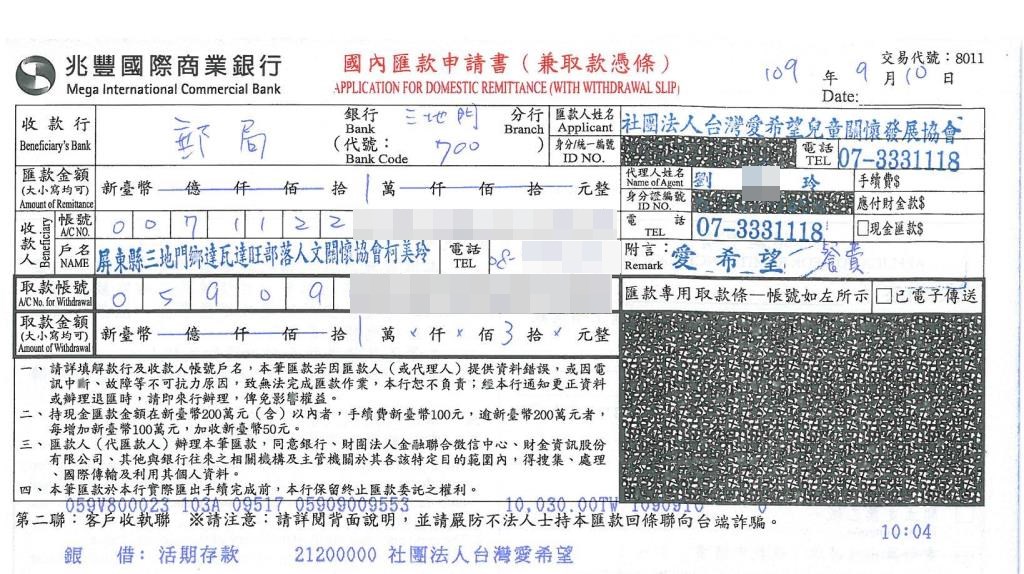 兆豐國際商業銀行
Mega International Commercial Bank
國內匯款申請書（兼取款憑條）
APPLICATION FOR DOMESTIC REMITTANCE (WITH WITHDRAWAL SLIP)
交易代號：8011
109 年 9 月 10 日
Date:
收款行 Beneficiary's Bank 郵局 銀行 Bank 三地門 分行 Branch
（代號： Bank Code 700 ）
匯款人姓名 Applicant 社團法人台灣愛希望兒童關懷發展協會
身分/統一編號 ID NO. 電話 TEL 07-3331118
匯款金額 (大小寫均可) Amount of Remittance 新臺幣 億 仟 佰 拾 1 萬 仟 佰 拾 元整
代理人姓名 Name of Agent 劉 玲 手續費$
身分證編號 ID NO. 應付財金款$
收款人 Beneficiary 帳號 A/C NO. 0071122
電話 TEL 07-3331118 □現金匯款$
戶名 NAME 屏東縣三地門鄉達瓦達旺部落人文關懷協會柯美玲 電話 TEL 08-
附言： Remark 愛希望-餐費
取款帳號 A/C No. for Withdrawal 05909
匯款專用取款條—帳號如左所示 □已電子傳送
取款金額 (大小寫均可) Amount of Withdrawal 新臺幣 億 仟 佰 拾 1 萬 × 仟 × 佰 3 拾 × 元整
一、請詳填解款行及收款人帳號戶名，本筆匯款若因匯款人（或代理人）提供資料錯誤，或因電
訊中斷、故障等不可抗力原因，致無法完成匯款作業，本行恕不負責；經本行通知更正資料
或辦理退匯時，請即來行辦理，俾免影響權益。
二、持現金匯款金額在新臺幣200萬元（含）以內者，手續費新臺幣100元，逾新臺幣200萬元者，
每增加新臺幣100萬元，加收新臺幣50元。
三、匯款人（代匯款人）辦理本筆匯款，同意銀行、財團法人金融聯合徵信中心、財金資訊股份
有限公司、其他與銀行往來之相關機構及主管機關於其各該特定目的範圍內，得搜集、處理
、國際傳輸及利用其個人資料。
四、本筆匯款於本行實際匯出手續完成前，本行保留終止匯款委託之權利。
059V800023 103A 09517 05909009553 10,030.00TW 1090910 0
第二聯：客戶收執聯 ※請注意：請詳閱背面說明，並請嚴防不法人士持本匯款回條聯向台端詐騙。
10:04
銀 借：活期存款 21200000 社團法人台灣愛希望